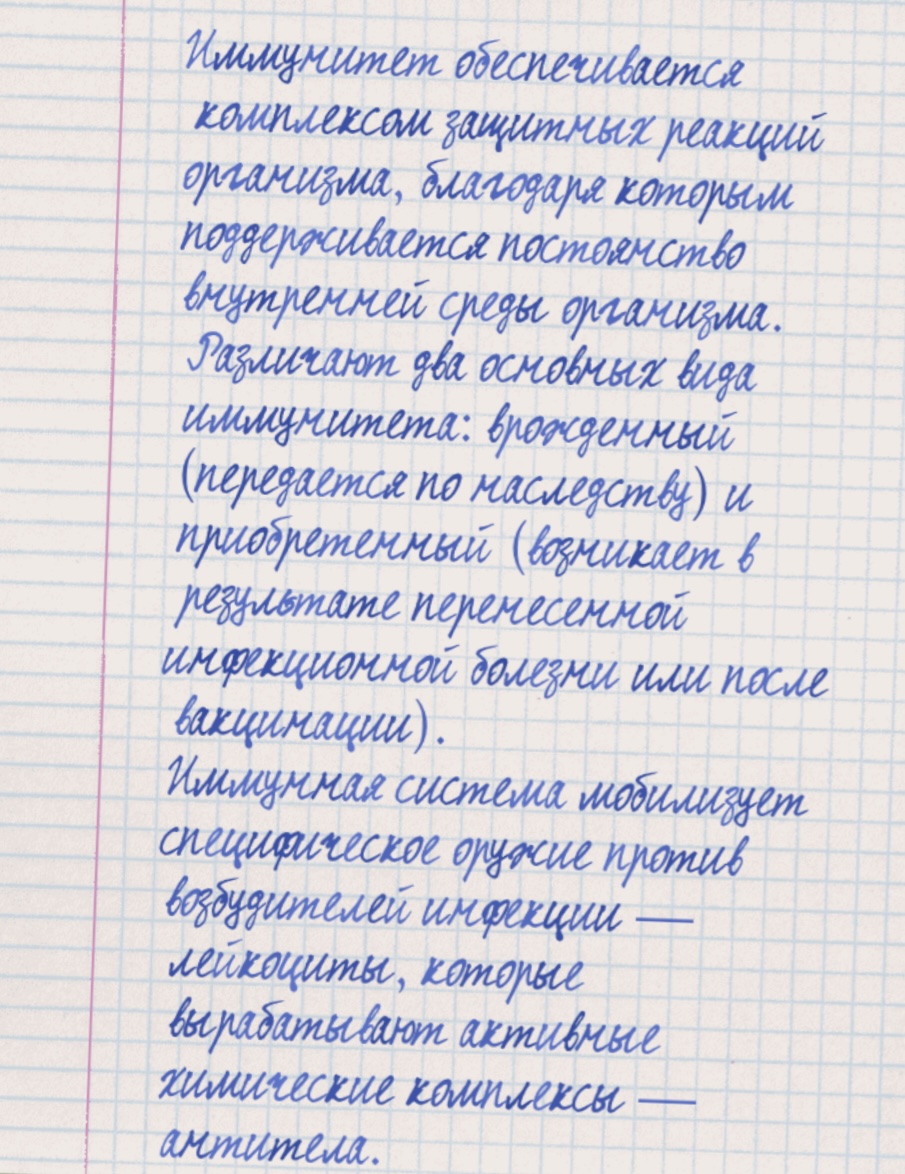 Иммунитет обеспечивается
комплексом защитных реакций
организма, благодаря которым
поддерживается постоянство
внутренней среды организма.
Различают два основных вида
иммунитета: врожденный
(передается по наследству) и
приобретенный (возникает в
результате перенесенной
инфекционной болезни или после
вакцинации).
Иммунная система мобилизует
специфическое оружие против
возбудителей инфекции —
лейкоциты, которые
вырабатывают активные
химические комплексы —
антитела.